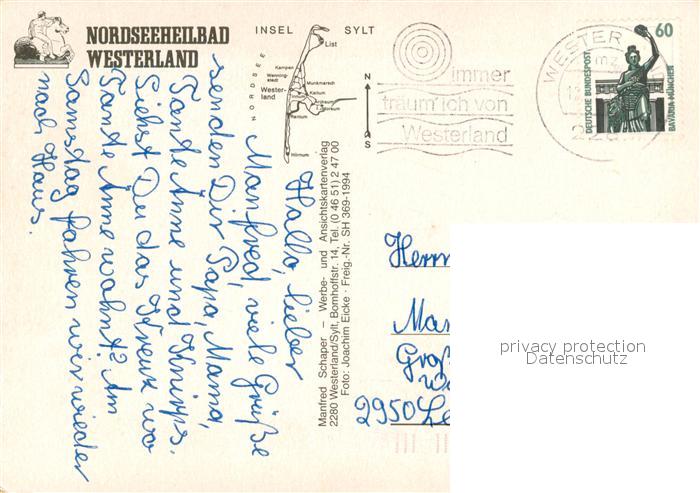 NORDSEEHEILBAD
WESTERLAND
INSEL SYLT
List
NORDSEE
Kampen
Wenning-
stedt
Munkmarsch
Wester-
land
Keitum
Archsum
Morsum
Rantum
Hörnum
N
S
immer
träum'ich von
Westerland
WESTER
60
DEUTSCHE BUNDESPOST
BAVARIA MÜNCHEN
Hallo, lieber
Manfred, viele Grüße
senden Dir Papa, Mama,
Tante Änne und Knirps.
Siehst Du das Kreuz wo
Tante Änne wohnt? Am
Samstag fahren wir wieder
nach Haus.
Manfred Schaper – Werbe- und Ansichtskartenverlag
2280 Westerland/Sylt, Bomhoffstr. 14, Tel. (0 46 51) 2 47 00
Foto: Joachim Eicke · Freig.-Nr. SH 369-1994
Herrn
Man
Groß
We
2950 Le
privacy protection
Datenschutz